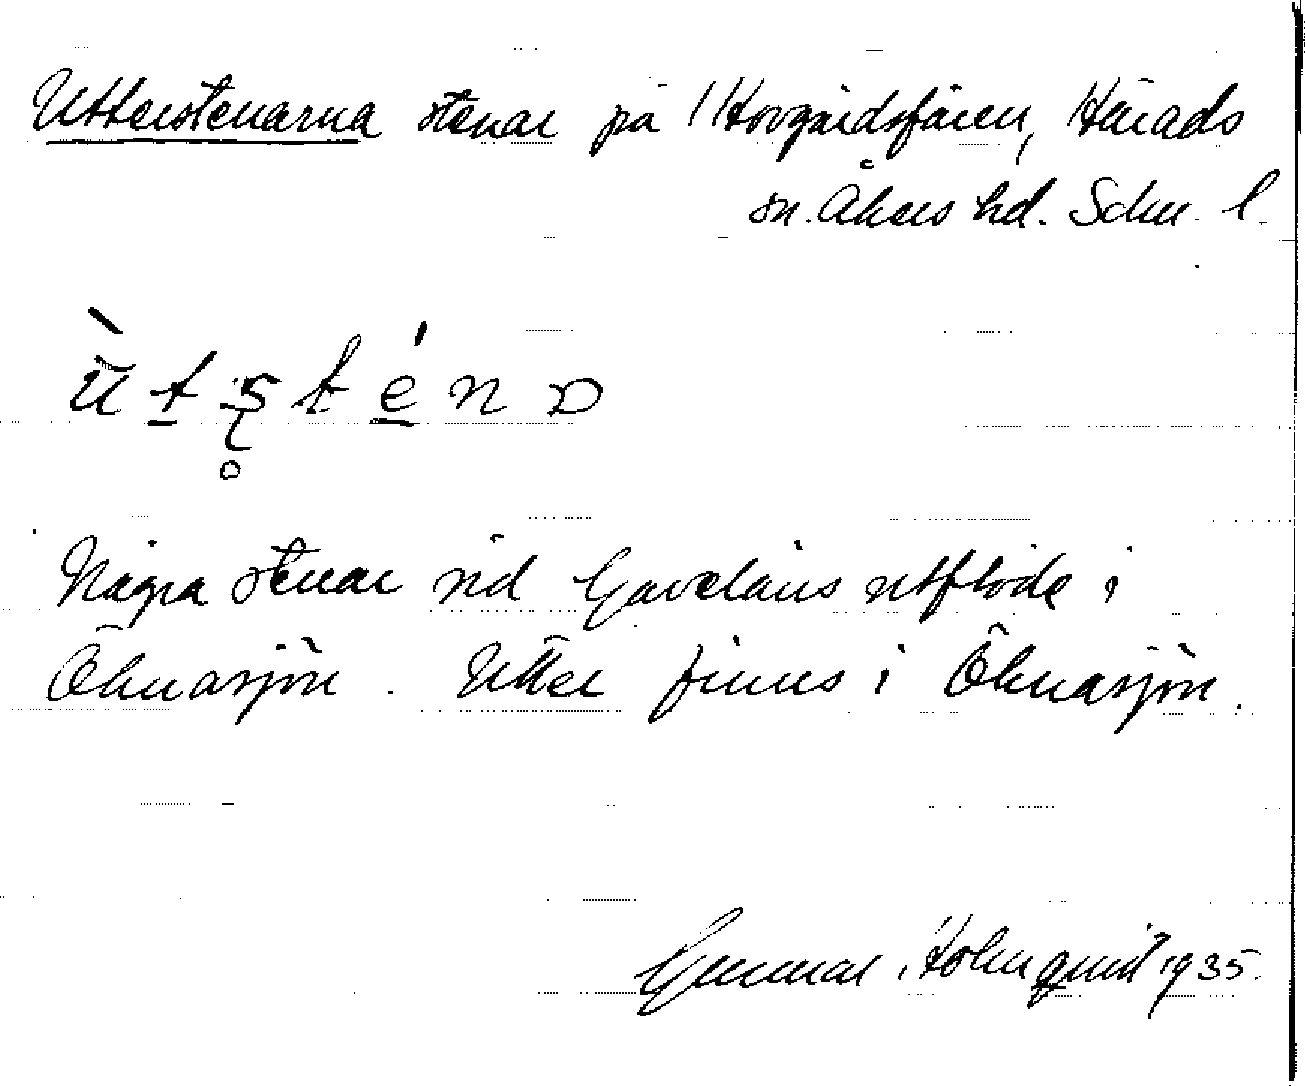 Utterstenarna stenar på Hovgårdsfjärden, Härads
sn. Åkers hd. Södm. l.
Några stenar vid Gavelåns utflöde i
Öknasjön. Utter finns i Öknasjön.
Gunnar Holmquist 1935.